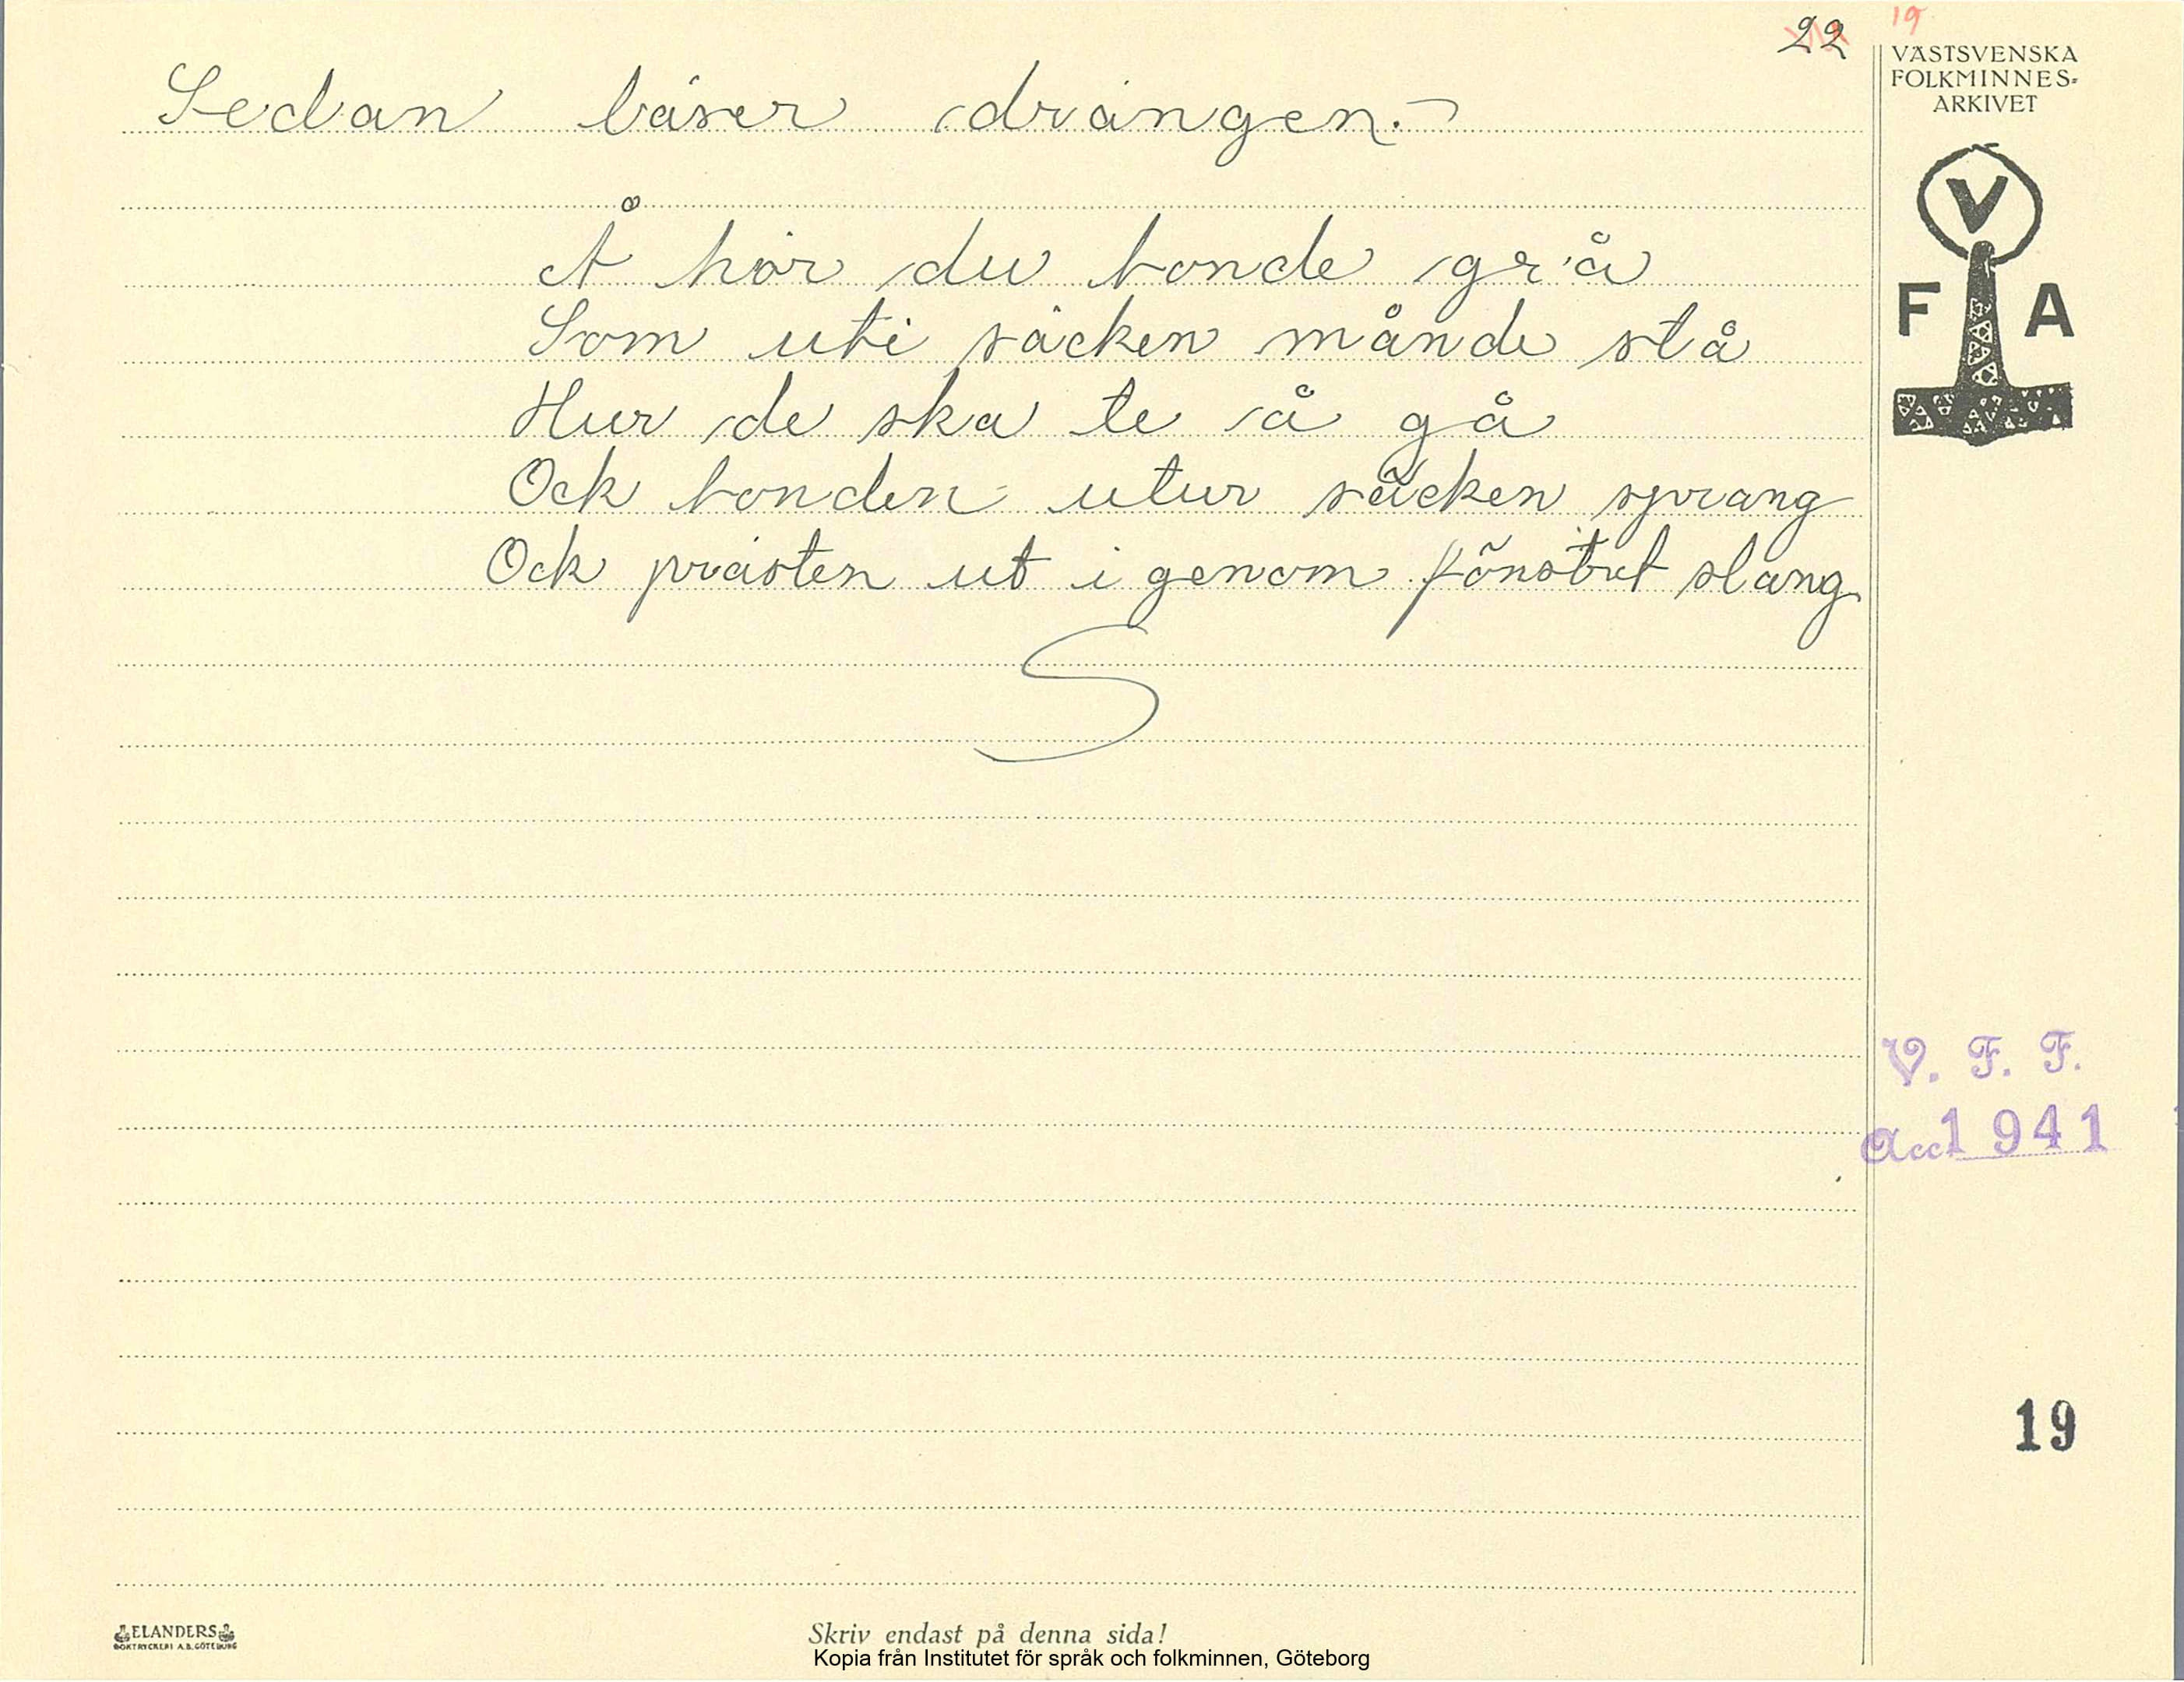 22
19
VÄSTSVENSKA
FOLKMINNES-
ARKIVET
V
F A
Sedan läser drängen.
Å hör du bonde grå
Som uti säcken månde stå
Hur de ska te å gå
Ock bonden utur säcken sprang
Ock prästen ut i genom fönstret slang
S
V. F. F.
Acc 1941
19
ELANDERS
BOKTRYCKERI A.B. GÖTEBORG
Skriv endast på denna sida!
Kopia från Institutet för språk och folkminnen, Göteborg